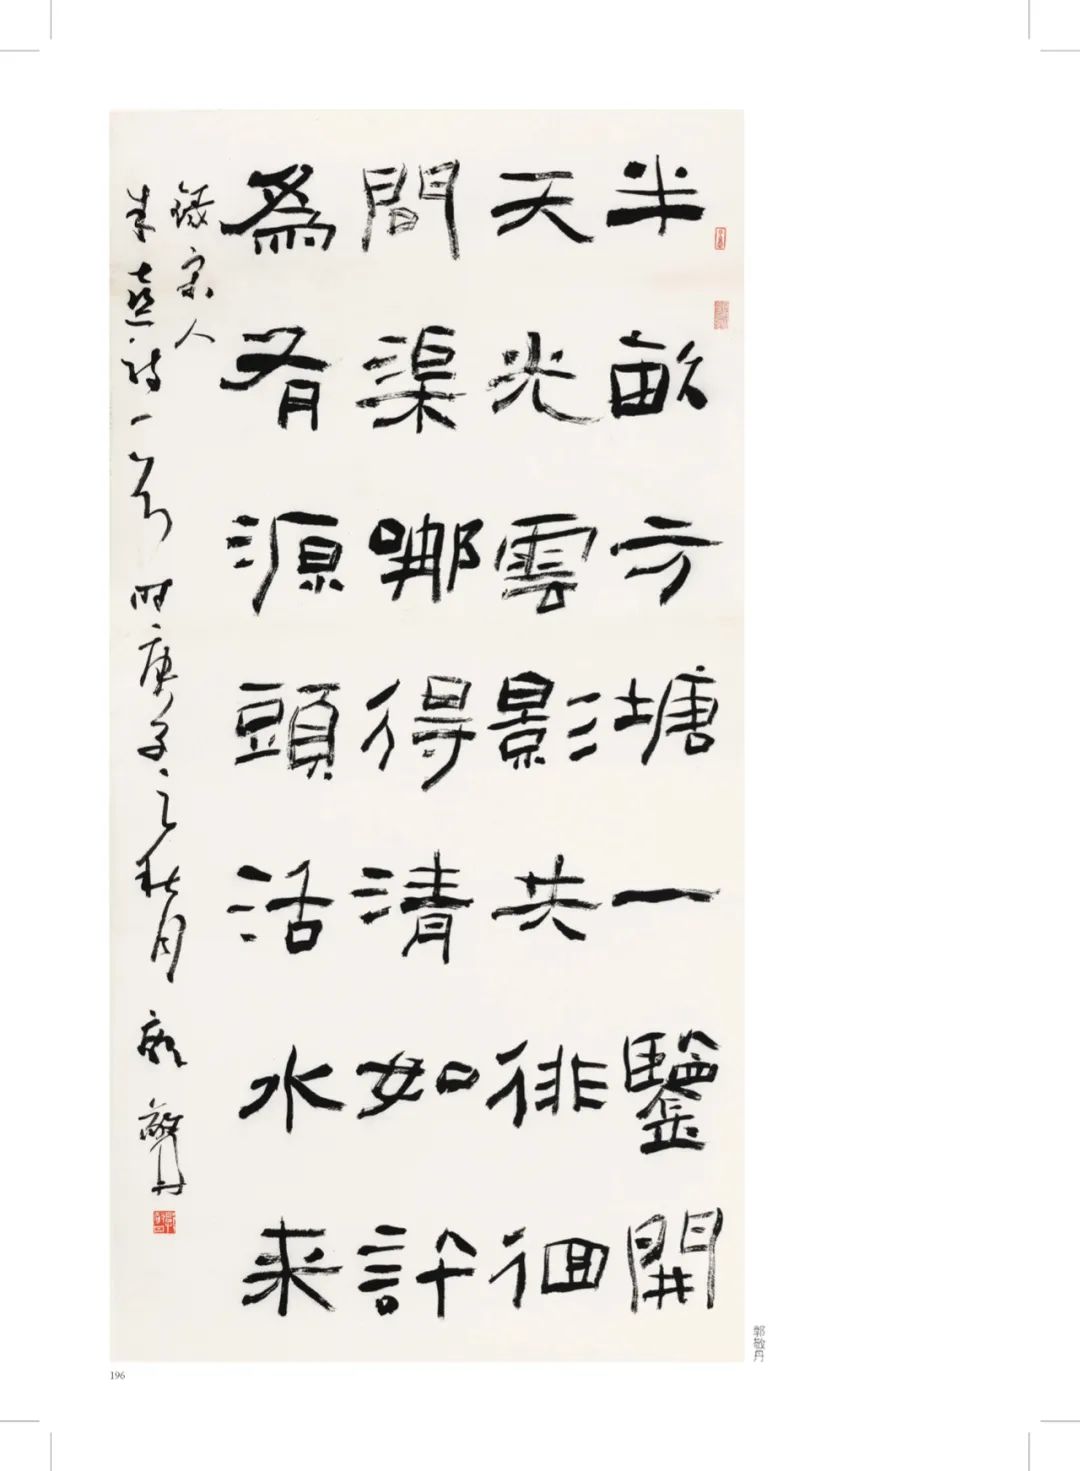 半畝方塘一鑒開
天光雲影共徘徊
間渠哪得清如許
為有源頭活水来
錄宋人
朱熹詩一首 时庚子之秋月 敬丹
郭敬丹
196